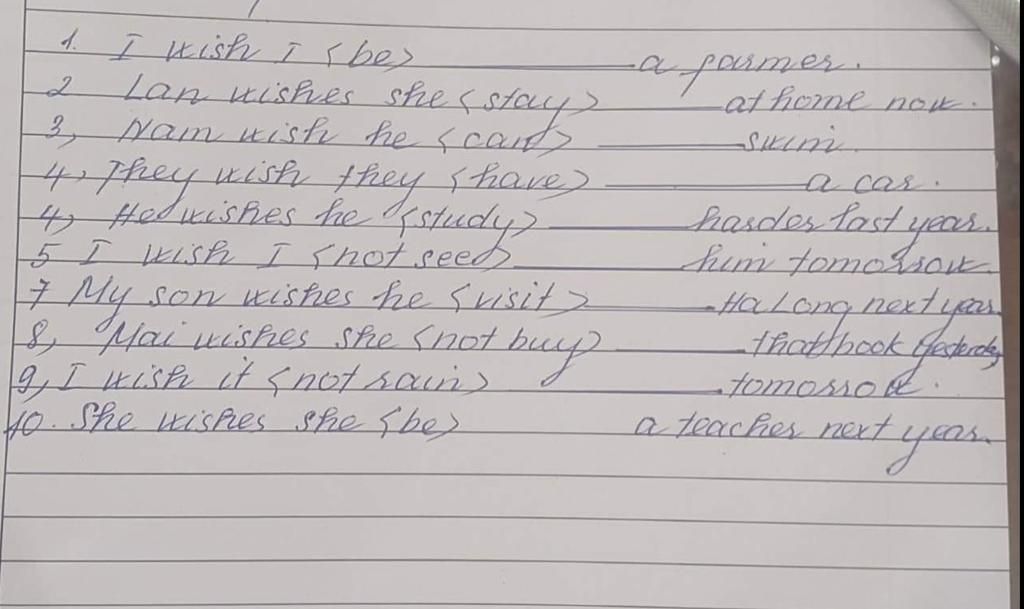 1. I wish I (be) ______ a farmer.
2 Lan wishes she (stay) ______ at home now.
3, Nam wish he (can) ______ swim.
4, They wish they (have) ______ a car.
4, He wishes he (study) ______ harder last year.
5 I wish I (not see) ______ him tomorrow.
7 My son wishes he (visit) ______ Ha Long next year.
8, Mai wishes she (not buy) ______ that book yesterday
9, I wish it (not rain) ______ tomorrow.
10. She wishes she (be) a teacher next year.